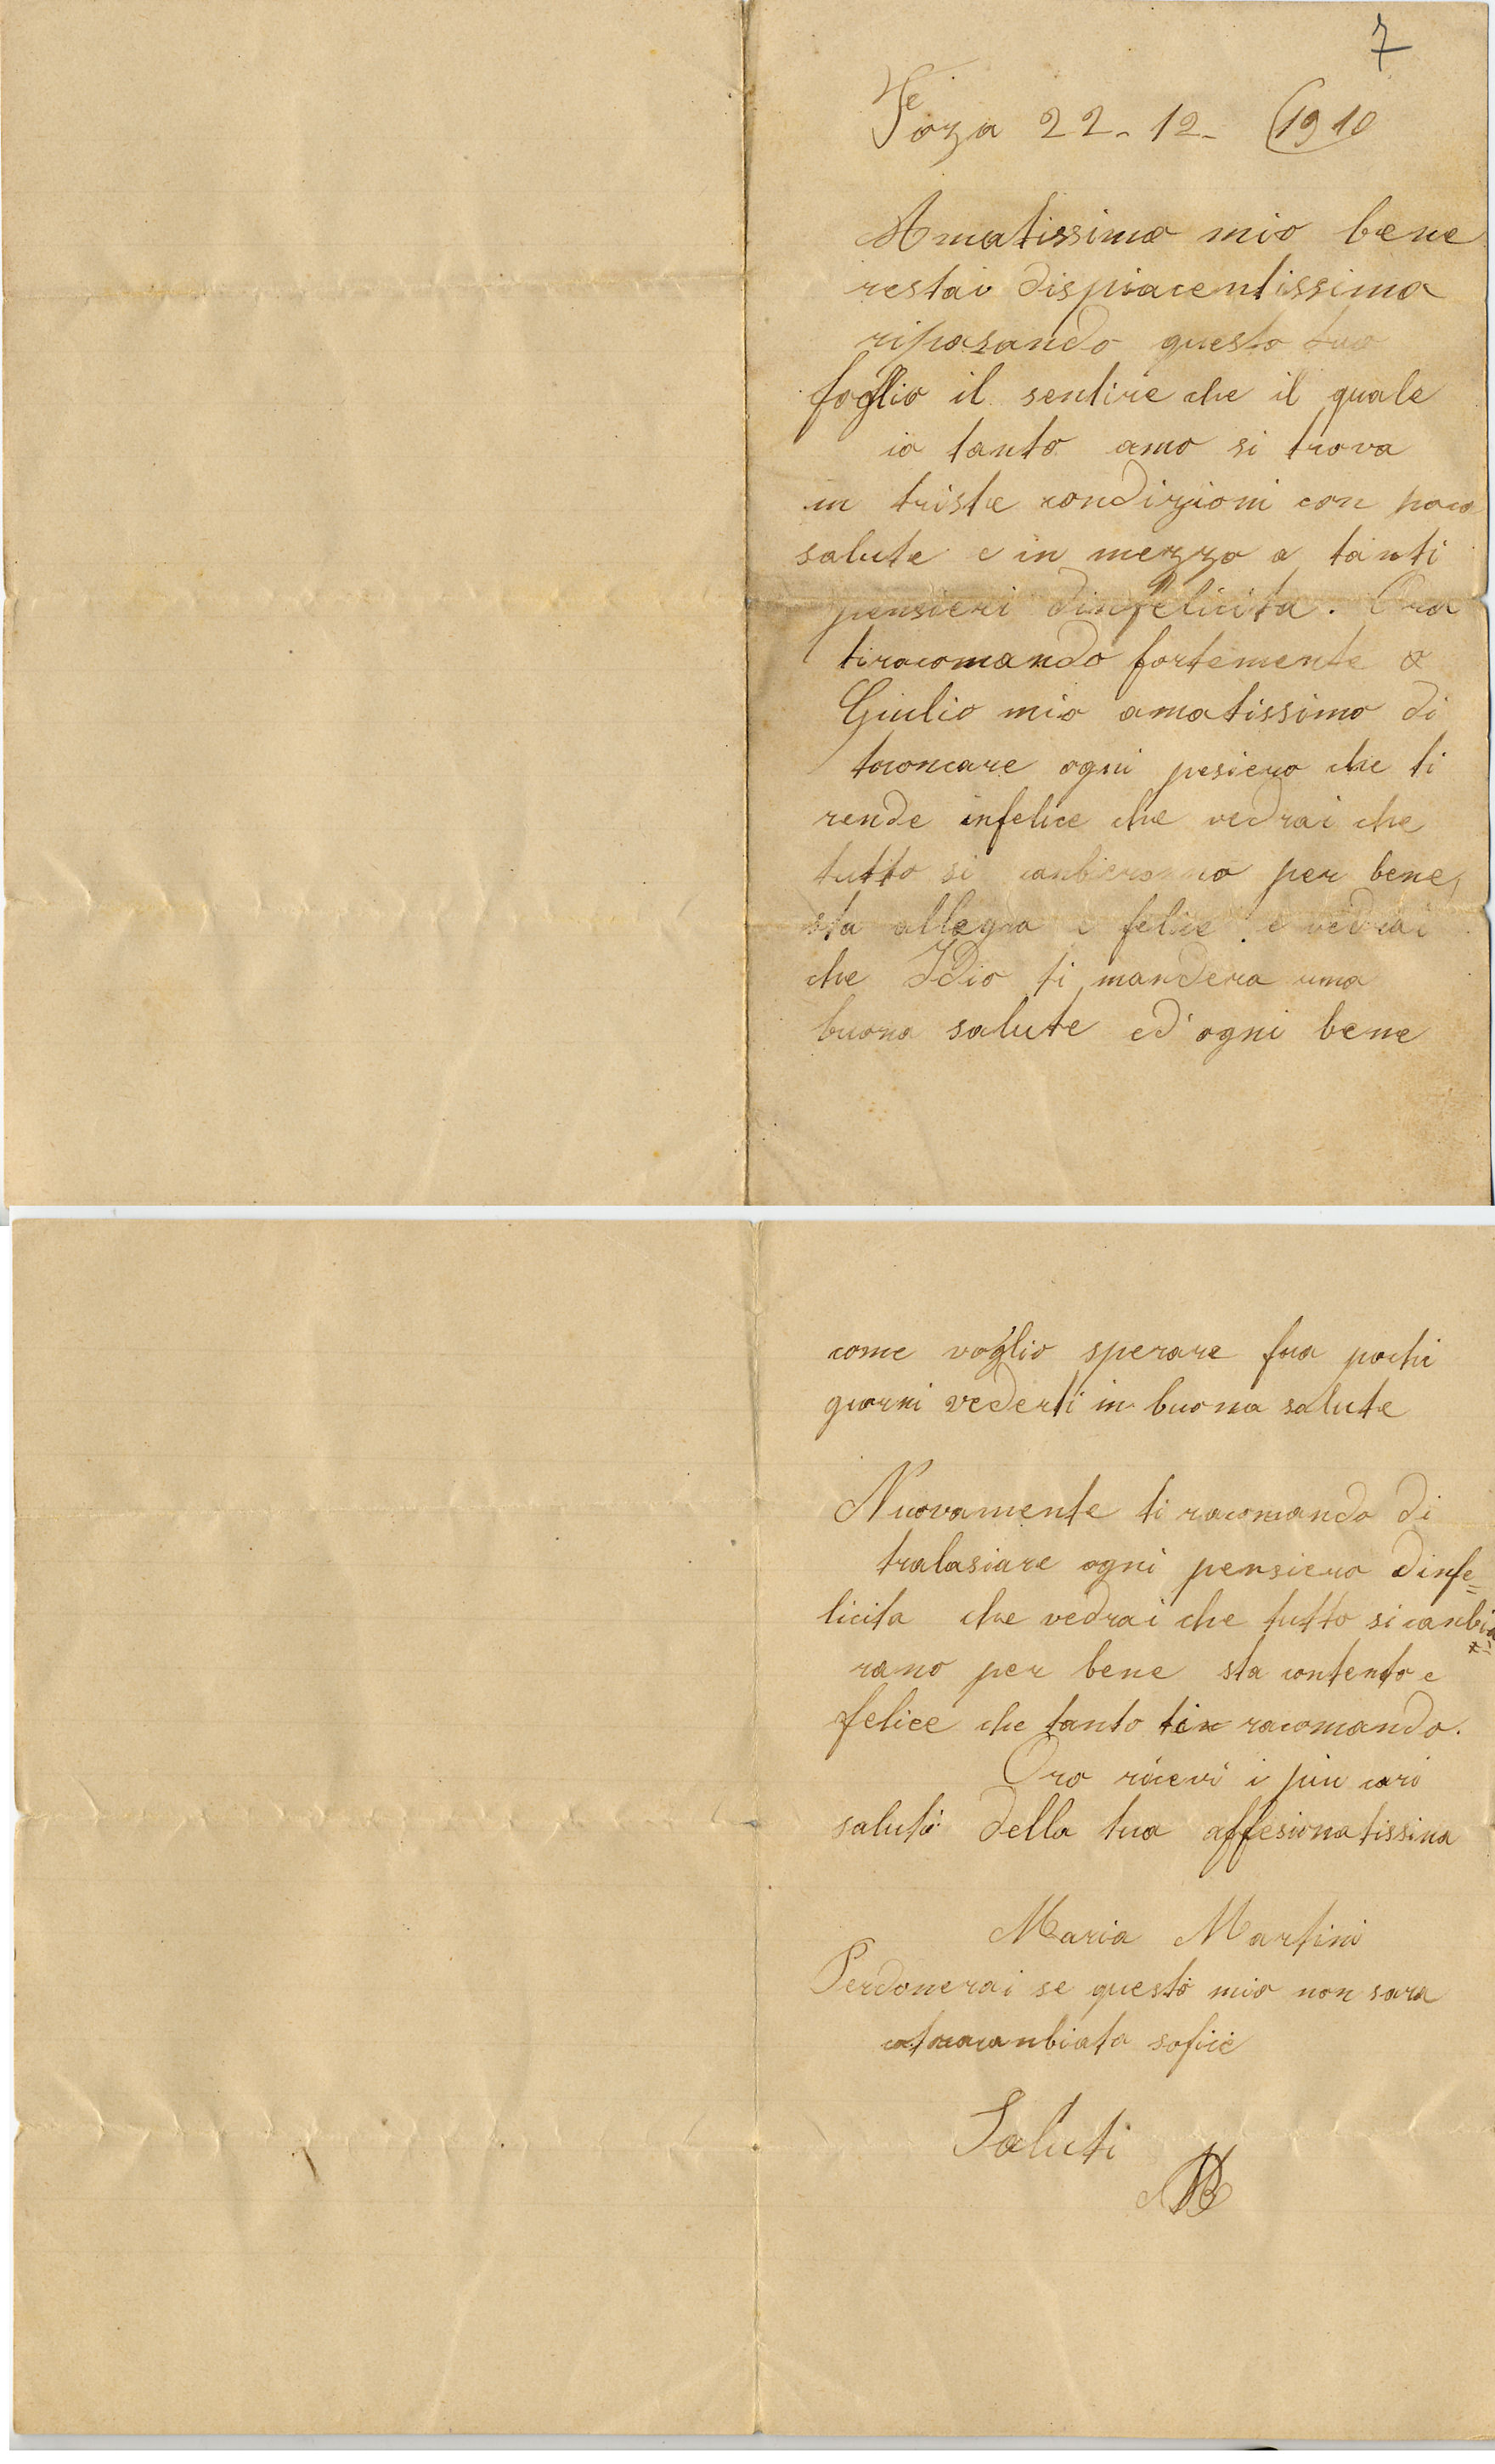 7
Foza 22-12- 1910
Amatissimo mio bene
restai dispiacentissima
riposando questo tuo
foglio il sentire che il quale
io tanto amo si trova
in triste condizioni con poca
salute e in mezzo a tanti
pensieri dinfelicita. Ora
tiracomando fortemente o
Giulio mio amatissimo di
troncare ogni pesiero che ti
rende infelice che vedrai che
tutto si per bene,
sta allegro e felice e vedrai
che Idio ti mandera una
buona salute ed' ogni bene
come voglio sperare fra pochi
giorni vederti in buona salute
Nuovamente ti racomando di
tralasiare ogni pensiero dinfe=
licita che vedrai che tutto si canbia
rano per bene sta contento e
felice che tanto racomando.
Ora ricevi i piu cari
saluti della tua affesionatissima
Maria Martini
Perdonerai se questo mio non sara
Saluti